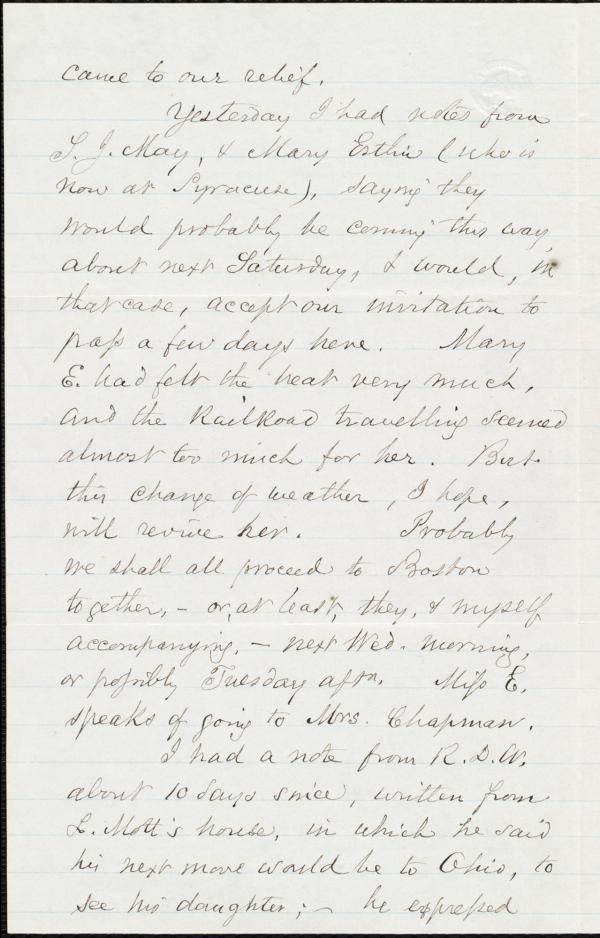 came to our relief.
Yesterday I had notes from
S. J. May, & Mary Esthin (who is
now at Syracuse), saying they
would probably be coming this way
about next Saturday, & would, in
that case, accept our invitation to
pass a few days here. Mary
E. had felt the heat very much,
and the Railroad travelling seemed
almost too much for her. But
this change of weather, I hope,
will revive her. Probably
we shall all proceed to Boston
together, – or, at least, they, & myself
accompanying, – next Wed. morning,
or possibly Tuesday aftn. Miss E.
speaks of going to Mrs. Chapman.
I had a note from R. D. W.
about 10 days since, written from
L. Mott's house, in which he said
his next move would be to Ohio, to
see his daughter; – he expressed